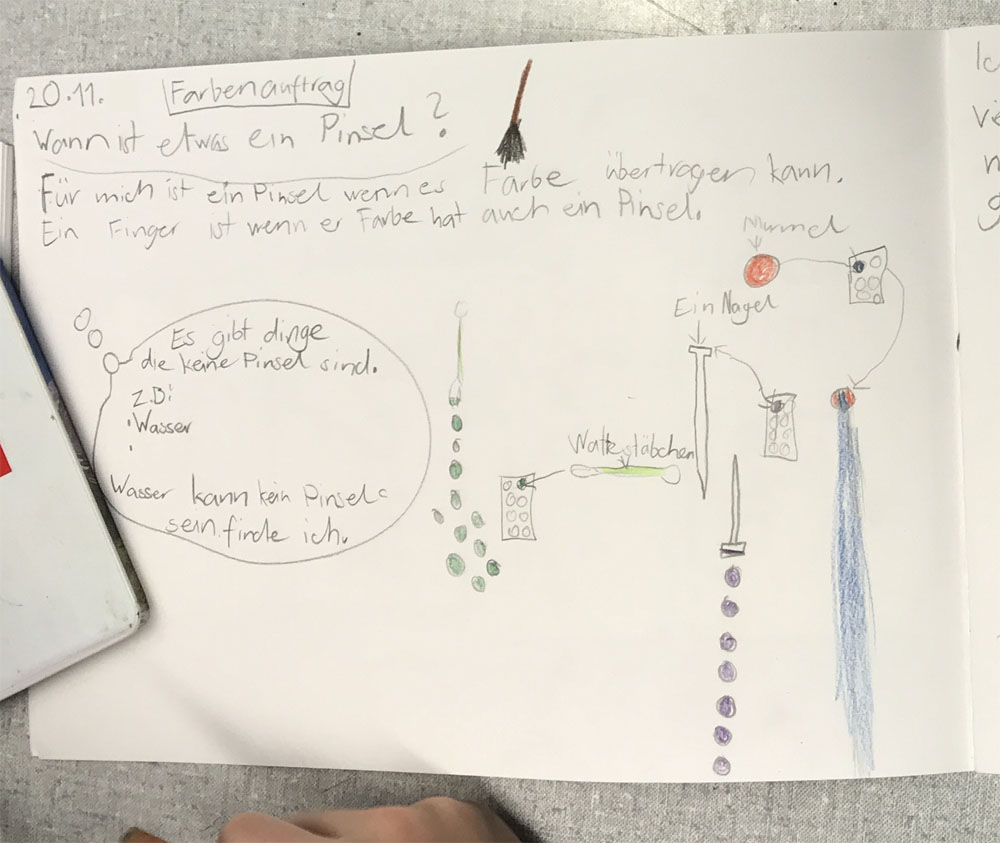 20.11. Farbenauftrag
Wann ist etwas ein Pinsel?
Für mich ist ein Pinsel wenn es Farbe übertragen kann.
Ein Finger ist wenn er Farbe hat auch ein Pinsel.
Murmel
Ein Nagel
Es gibt dinge
die keine Pinsel sind.
z.B:
• Wasser
•
Wattestäbchen
Wasser kann kein Pinsel
sein finde ich.
Ic